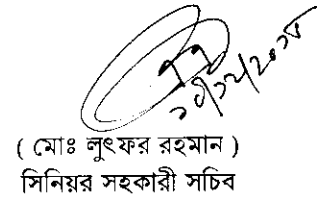 ( মোঃ লুৎফর রহমান )
সিনিয়র সহকারী সচিব